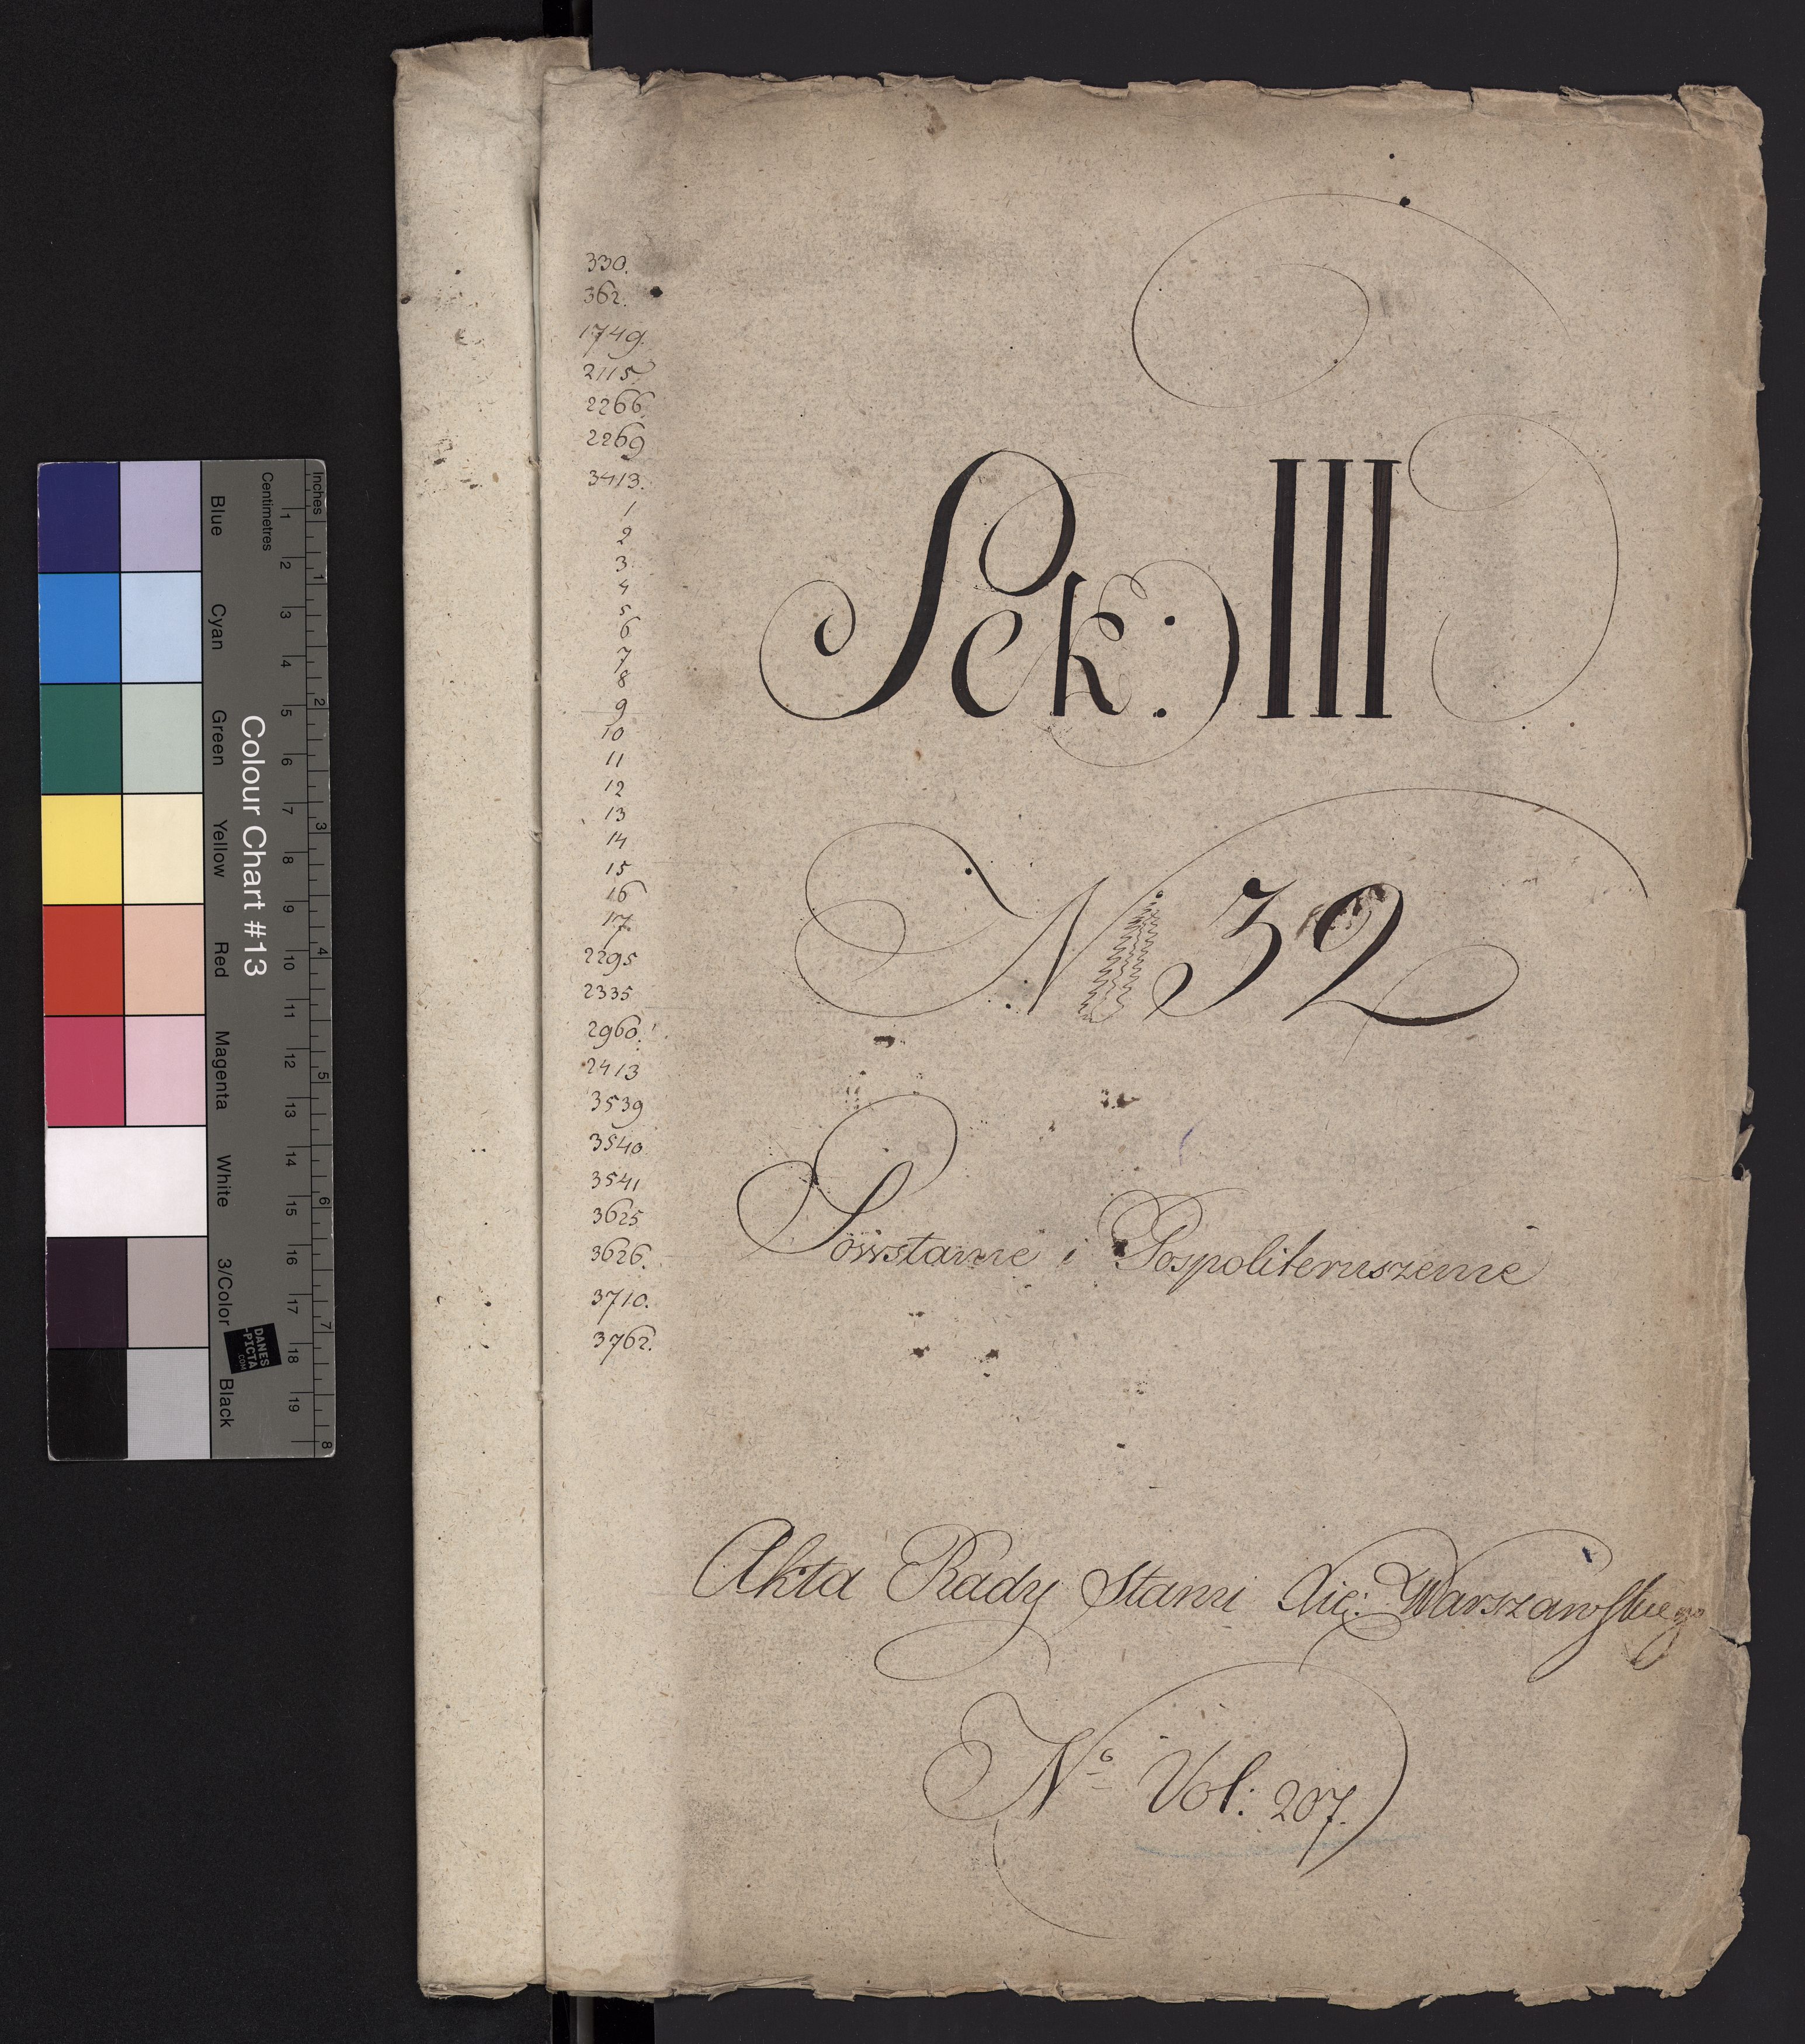 330.
362.
1749.
2115.
2266.
2269
3413.
1
2
3.
4
5
6
7
8
9
10
11
12
13
14
15
16
17.
2295
2335
2960.
2413
3539
3540
3541
3625
3626.
3710.
3762.
Sek: III
N 32
Powstanie i Pospoliteruszenie
Akta Rady Stanu Xię: Warszawskiego
No Vol: 207.
Colour Chart #13
Inches
1
2
3
4
5
6
7
8
Centimetres
1
2
3
4
5
6
7
8
9
10
11
12
13
14
15
16
17
18
19
Blue
Cyan
Green
Yellow
Red
Magenta
White
3/Color
Black
DANES
-PICTA
.COM